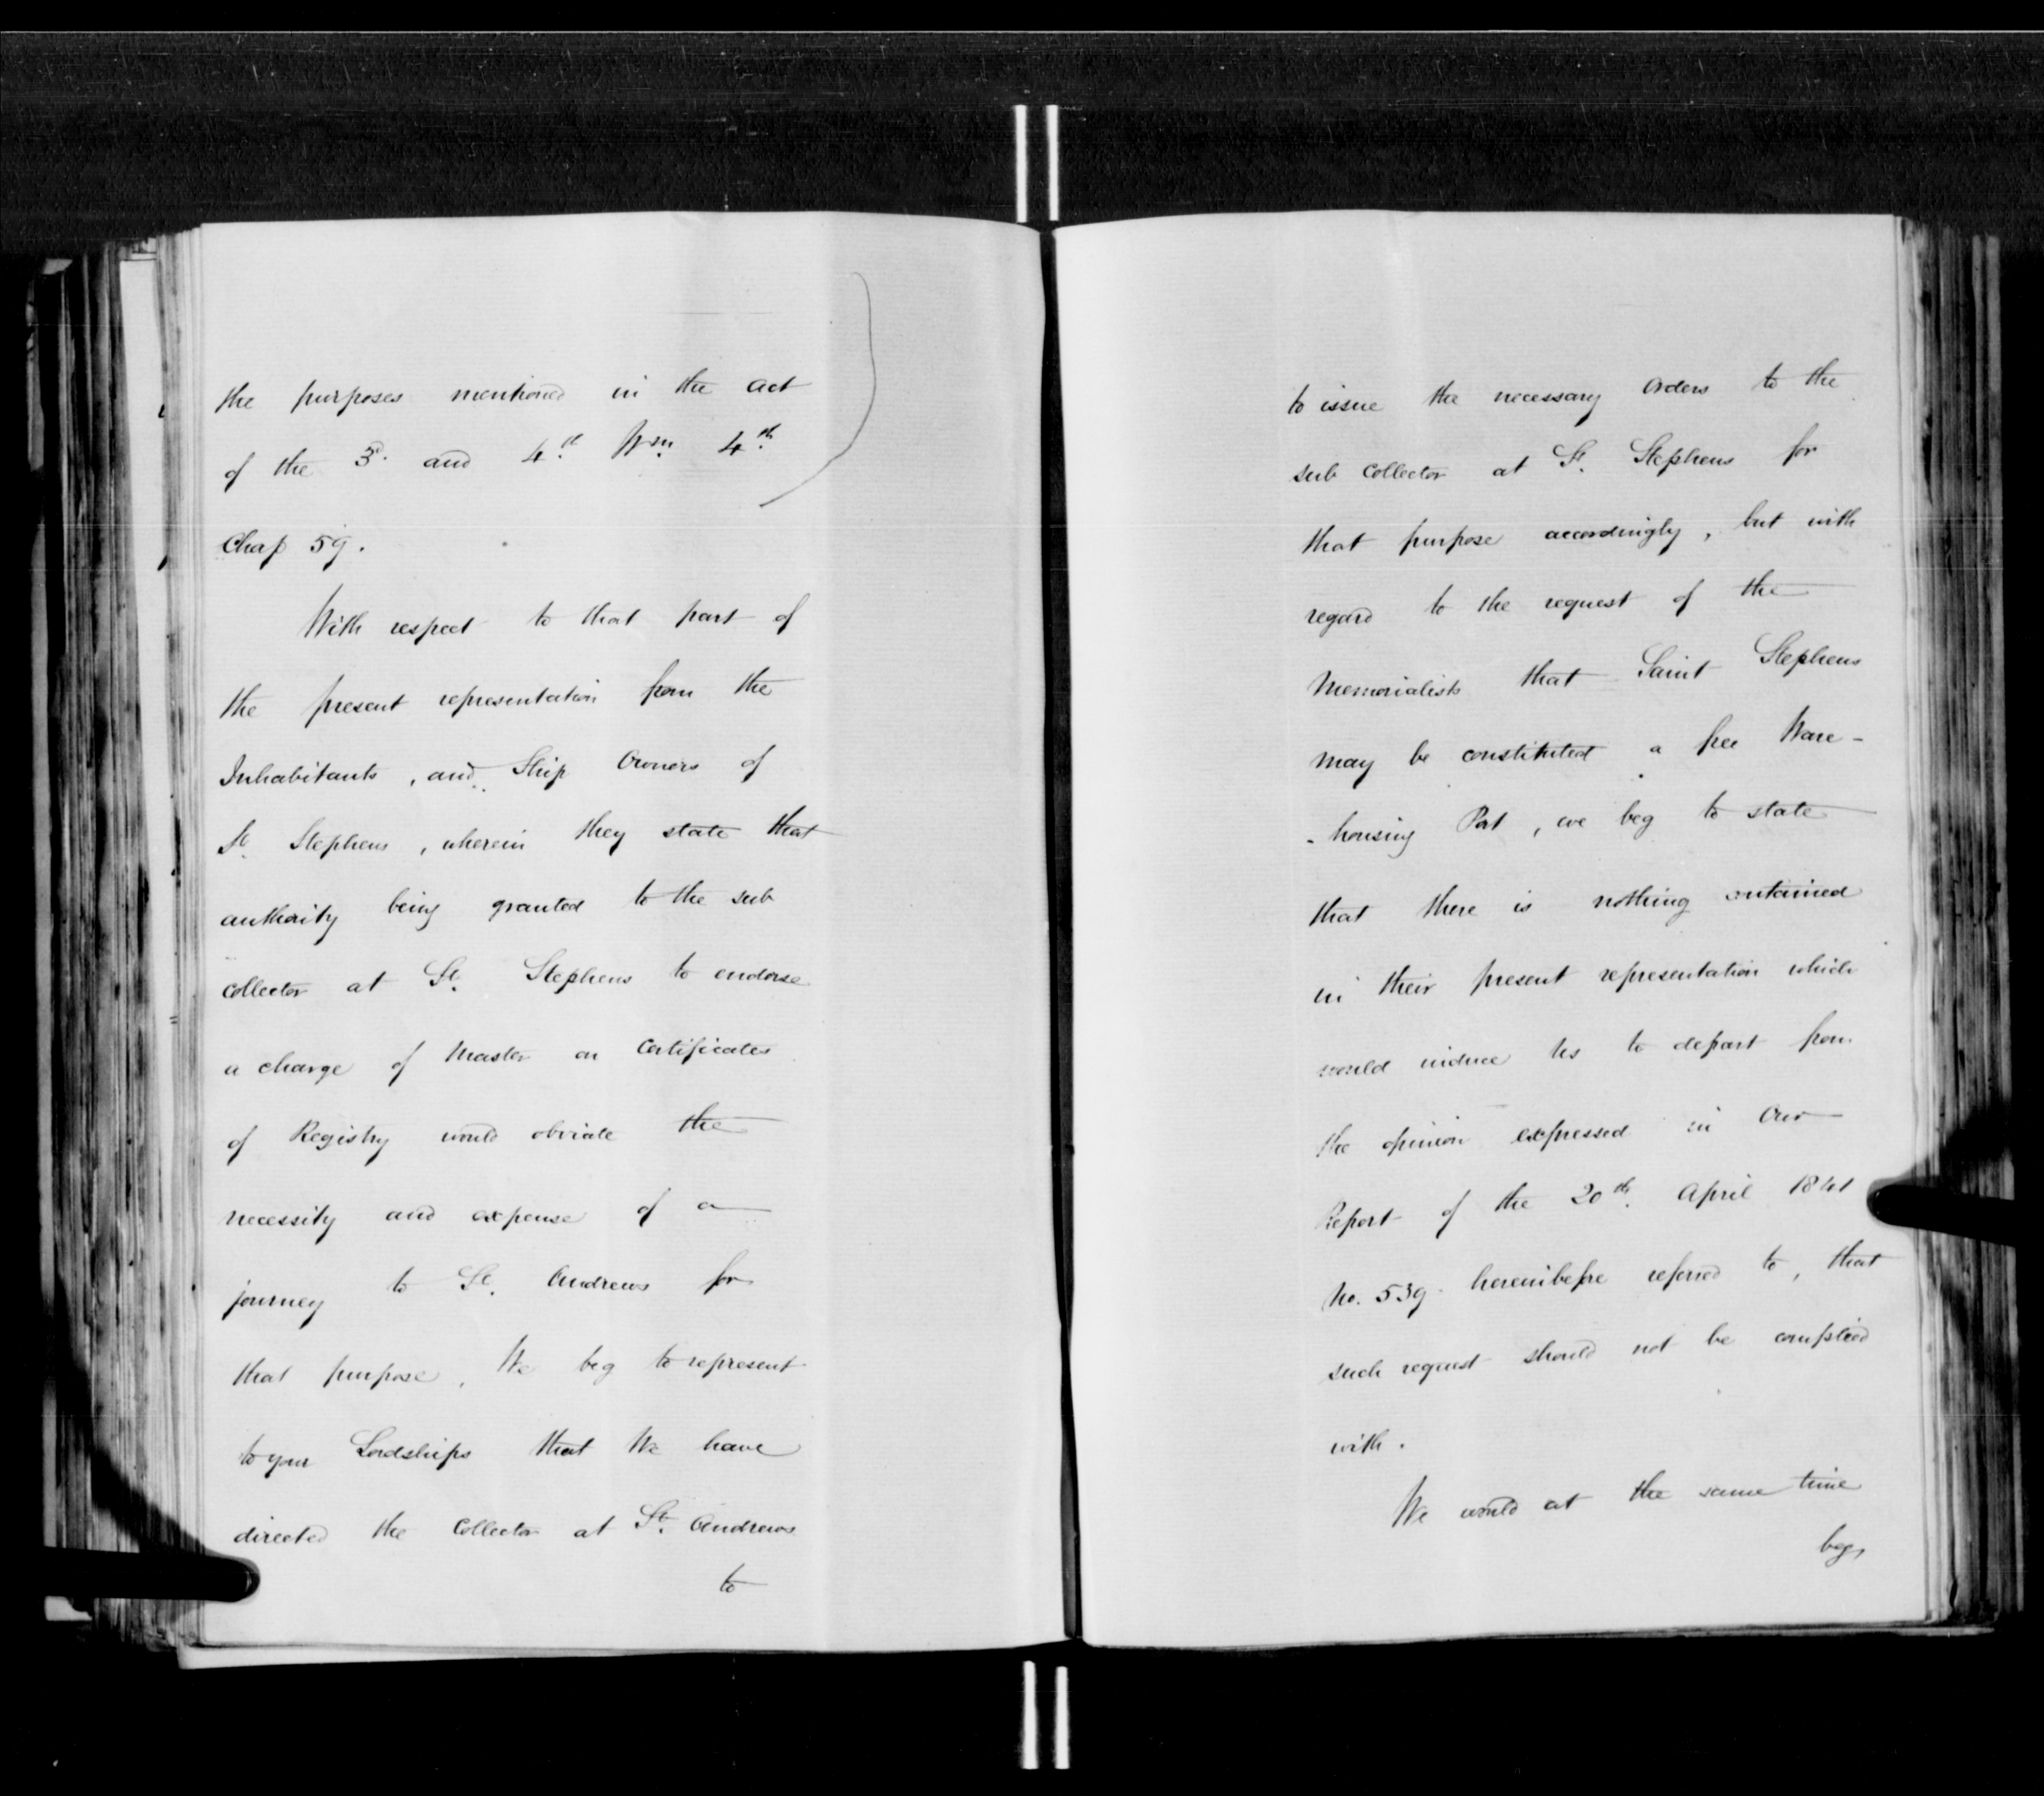 the purposes mentioned in the Act
of the 3d. and 4th Wm. 4th
Chap 59.
With respect to that part of
the present representation from the
Inhabitants, and Ship Owners of
St. Stephens, wherein they state that
authority being granted to the sub
collector at St. Stephens to endorse
a charge of Master on Certificates
of Registry would obviate the
necessity and expense of a
journey to St. Andrews for
that purpose, We beg to represent
to your Lordships that We have
directed the Collector at St. Andrews
to
to issue the necessary Orders to the
sub Collector at St. Stephens for
that purpose accordingly, but with
regard to the request of the
Memorialists that Saint Stephens
may be constituted a free Ware-
-housing Port, we beg to state
that there is nothing contained
in their present representation which
would induce Us to depart from
the opinion expressed in Our
Report of the 20th. April 1841
No. 539 hereinbefore referred to, that
such request should not be complied
with.
We would at the same time
beg,